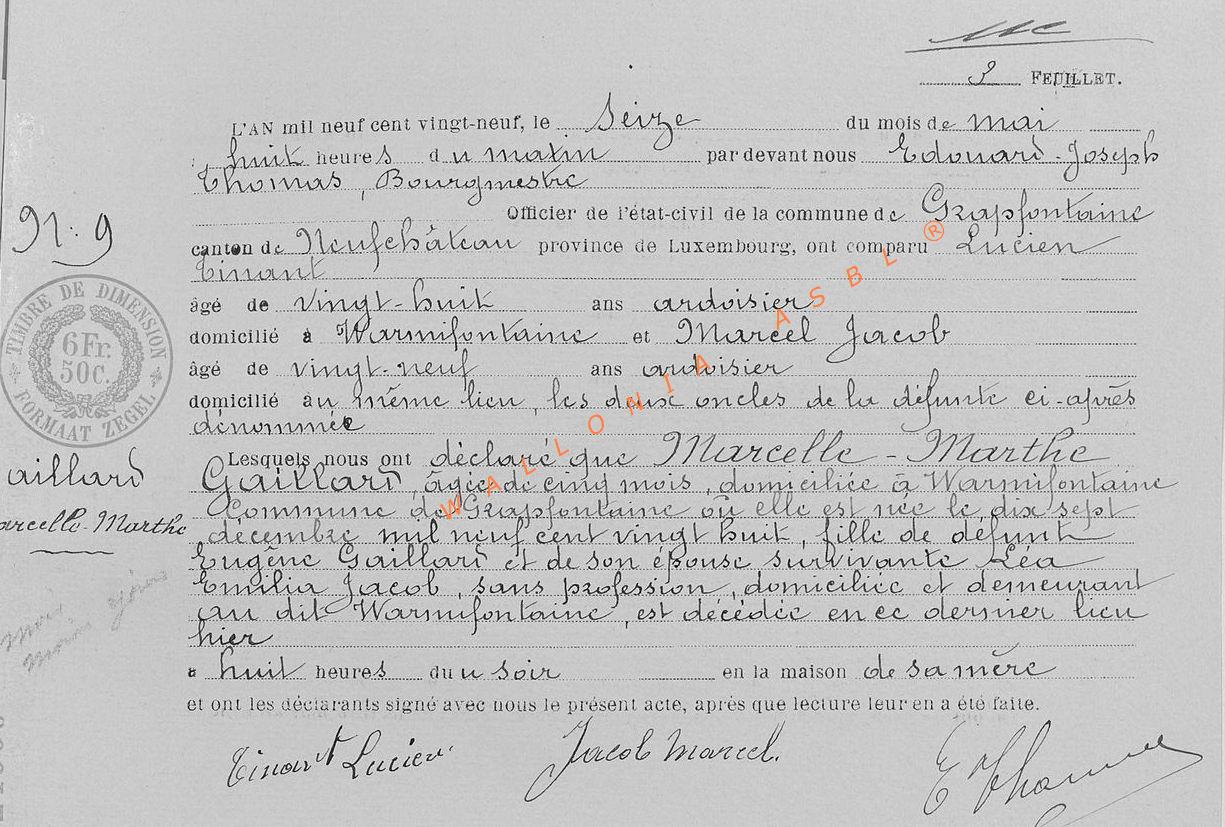 3 FEUILLET.
L'AN mil neuf cent vingt-neuf, le Seize du mois de mai
huit heures du matin par devant nous Edouard-Joseph
Thomas, Bourgmestre
Officier de l'état-civil de la commune de Grapfontaine
N: 9
canton de Neufchâteau province de Luxembourg, ont comparu Lucien
Tinant
âgé de vingt-huit ans ardoisier
domicilié à Warmifontaine et Marcel Jacob
âgé de vingt-neuf ans ardoisier
domicilié au même lieu, les deux oncles de la défunte ci-après
dénommée
TIMBRE DE DIMENSION
6 Fr.
50 C.
FORMAAT ZEGEL
Lesquels nous ont déclaré que Marcelle-Marthe
aillard
arcelle-Marthe
Gaillard, âgée de cinq mois, domiciliée à Warmifontaine
Commune de Grapfontaine où elle est née le dix sept
décembre mil neuf cent vingt huit, fille de défunt
Eugène Gaillard et de son épouse survivante Léa
Emilia Jacob, sans profession, domiciliée et demeurant
au dit Warmifontaine, est décédée en ce dernier lieu
hier
à huit heures du soir en la maison de sa mère
et ont les déclarants signé avec nous le présent acte, après que lecture leur en a été faite.
Tinant Lucien
Jacob Marcel.
E Thomas
WALLONIA ASBL ®